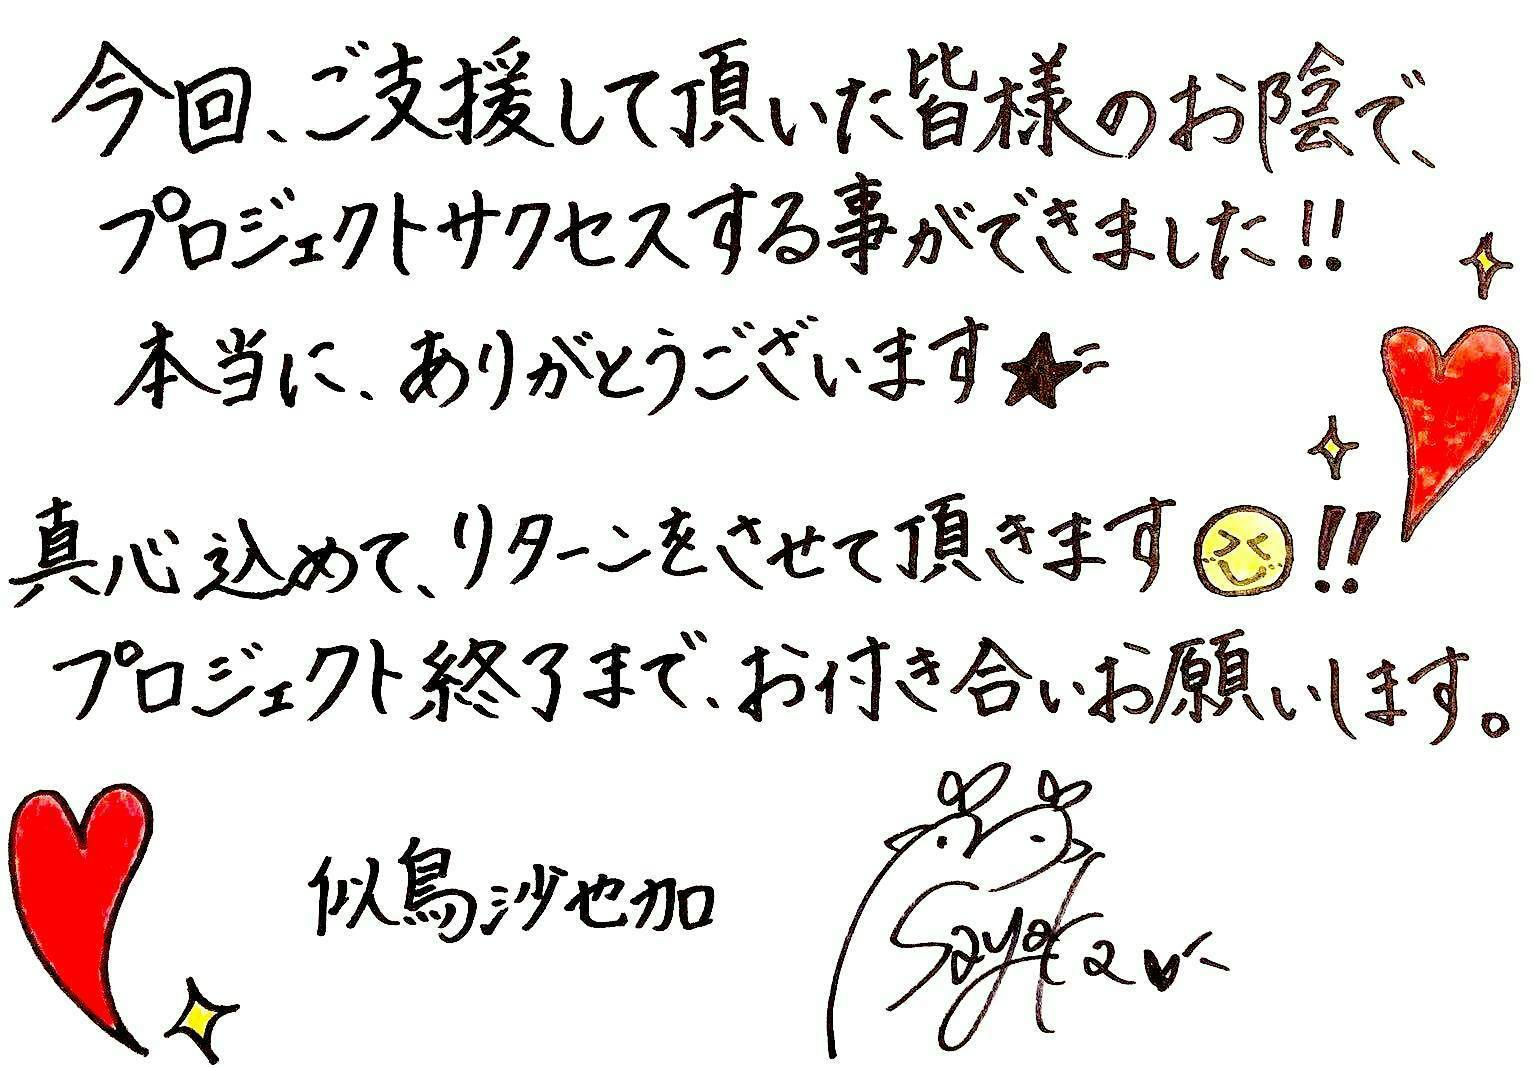 今回、ご支援して頂いた皆様のお陰で、
プロジェクトサクセスする事ができました!!
本当に、ありがとうございます★
真心込めて、リターンをさせて頂きます!!
プロジェクト終了まで、お付き合いお願いします。
似鳥沙也加
Sayaka